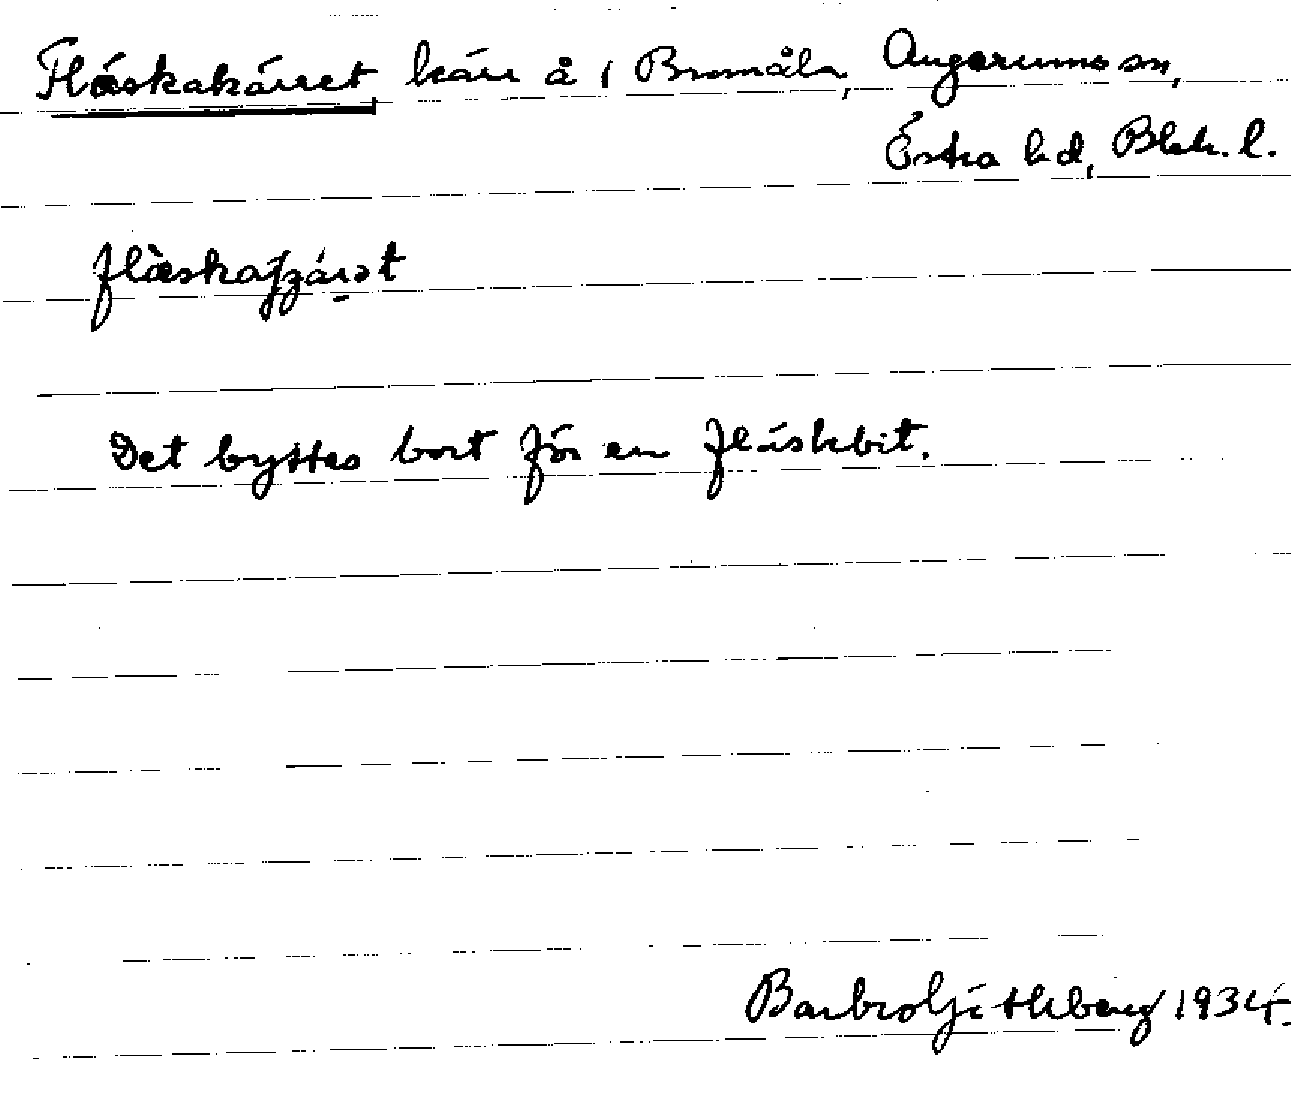 Fläskakärret, kärr å 1 Bromåla, Augerums sn,
Östra hd, Blek. l.
flàskaʃʒárət
Det byttes bort för en fläskbit.
Barbro Göthberg 1934.